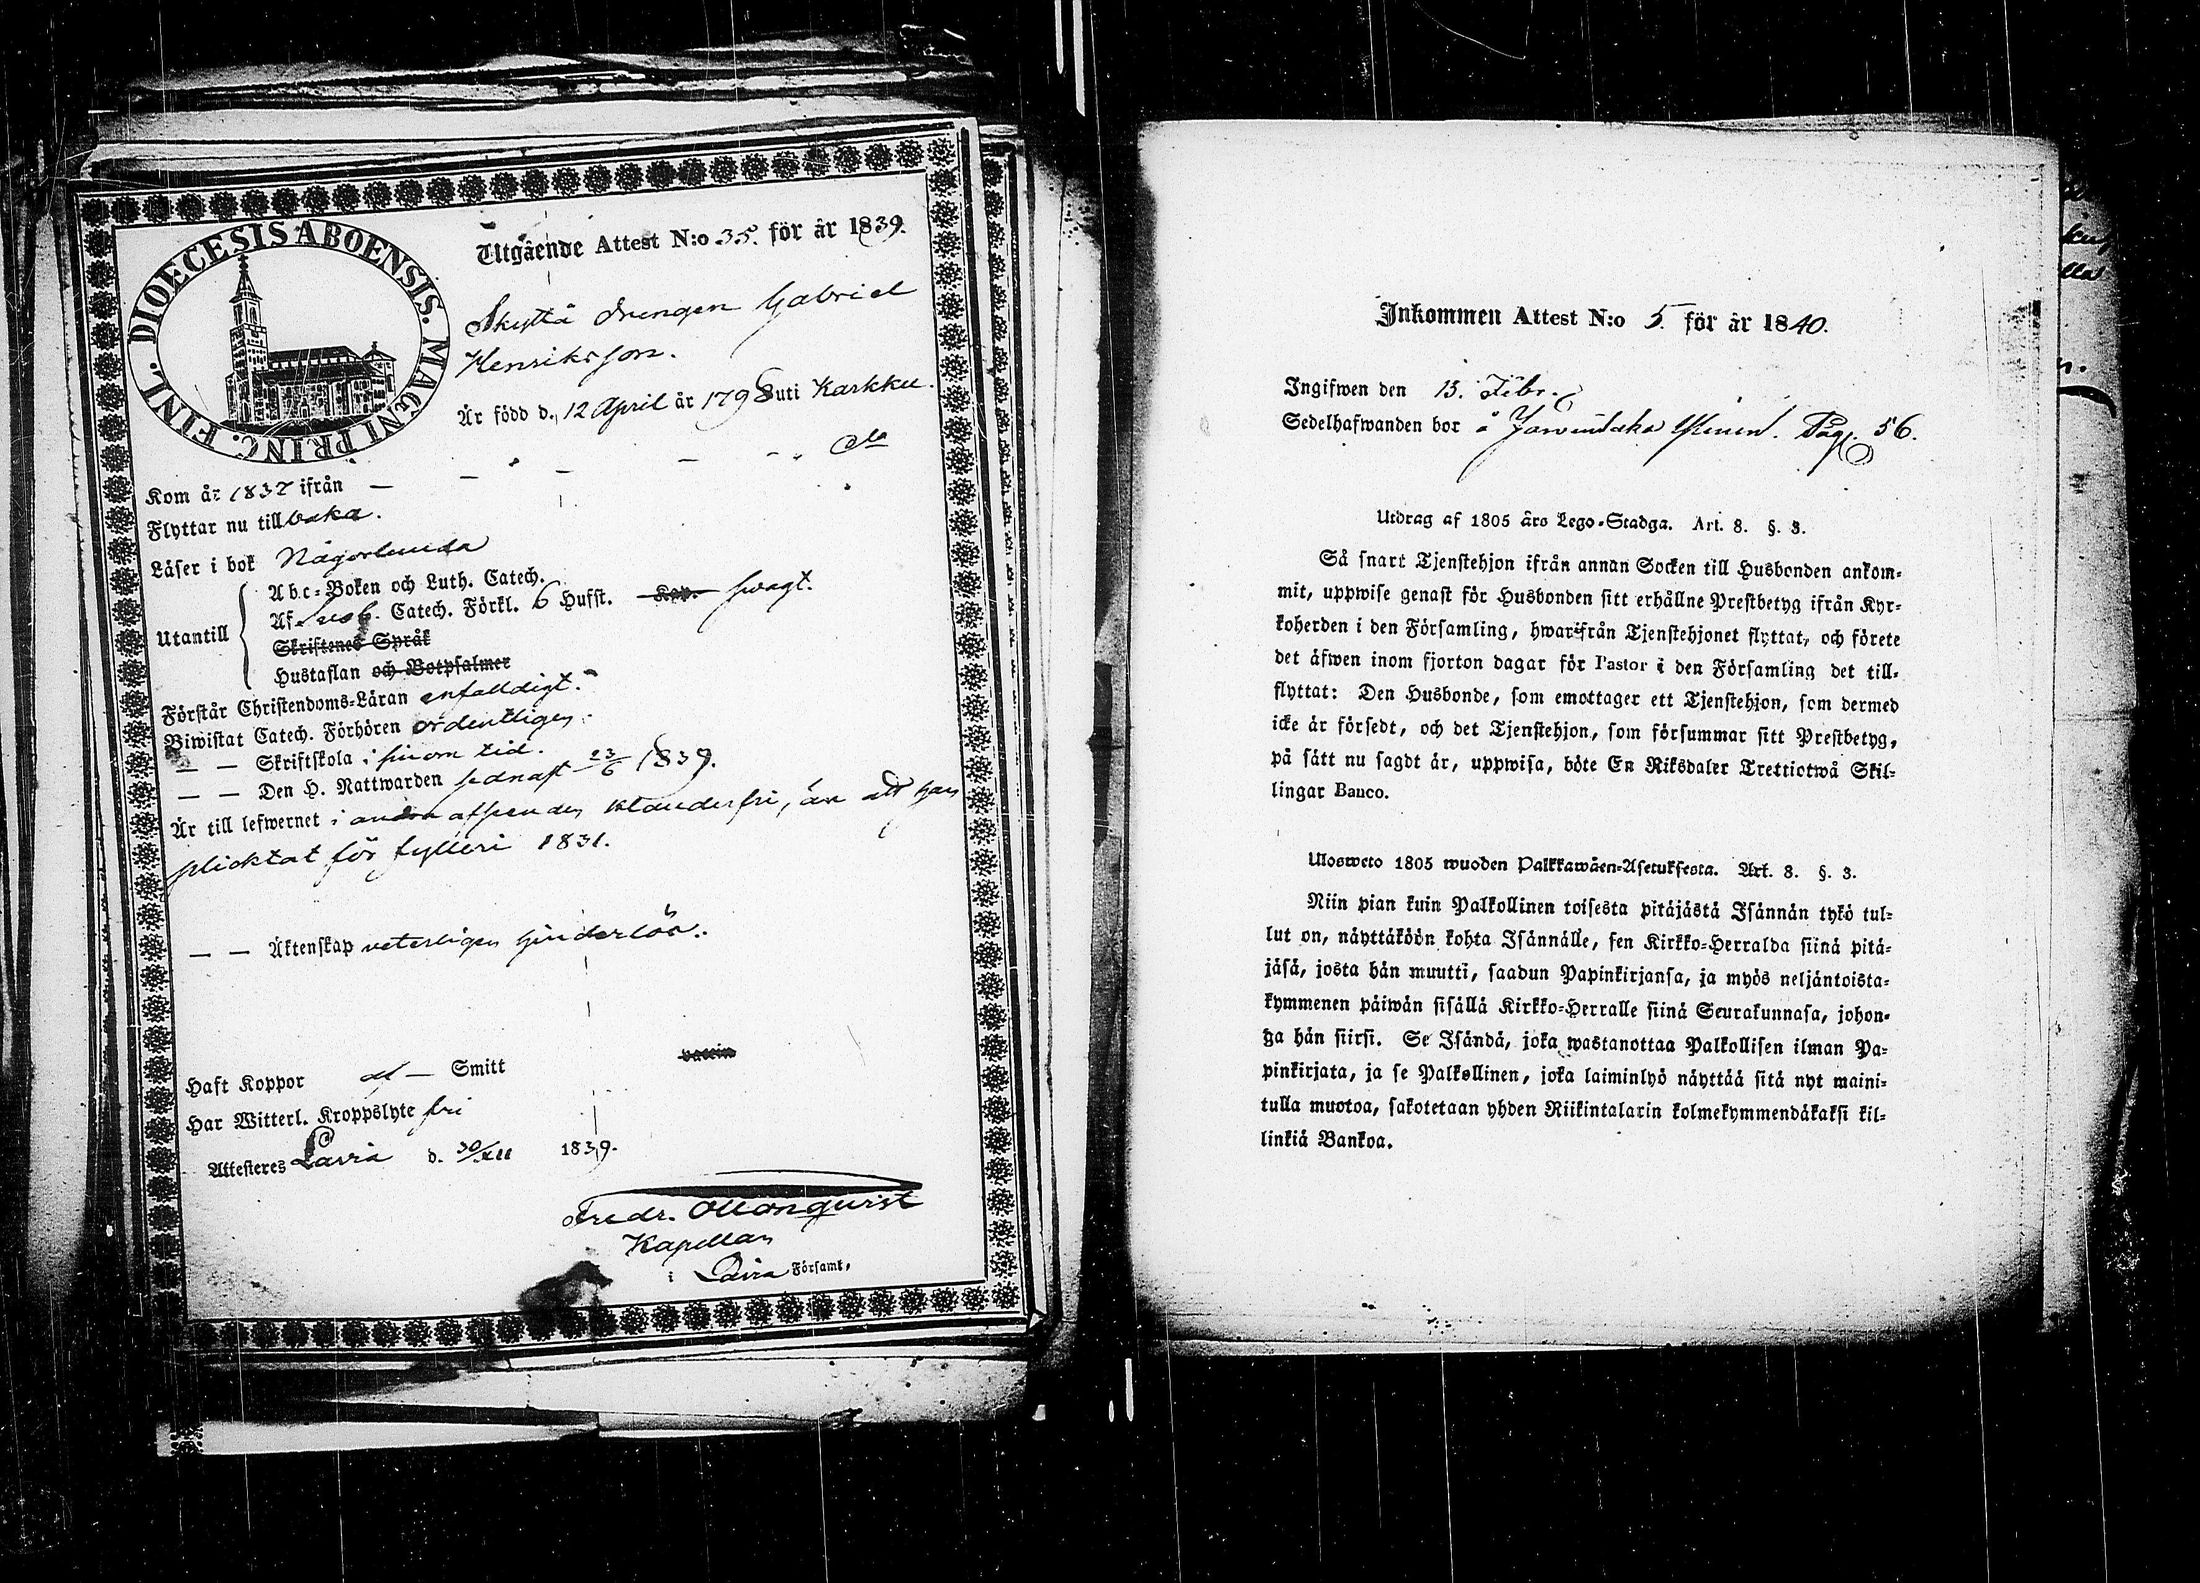 DIOECESIS ABOENSIS. MAGNI PRINC. FINL.
Utgående Attest N:o 35. för år 1839.
Skyttä Drengen Gabriel
Henriksson.
Är född d. 12 April år 1798 uti Karkku.
Kom år 1837 ifrån — — — — do
Flyttar nu tillbaka.
Läser i bok Någorlunda
Utantill
Abc-Boken och Luth. Catech.
Af Sveb. Catech. Förkl. 6 Hufst. Kap. swagt.
Skriftenes Språk
Hustaflan och Botpsalmer
Förstår Christendoms-Läran enfalldigt.
Biwistat Catech. Förhören ordentligen.
— — Skriftskola i sinom tid.
— — Den H. Nattwarden sednast 23/6 1839.
Är till lefwernet i andra afseenden klanderfri, än att han
plicktat för fylleri 1831.
— — Äktenskap veterligen hinderlös.
Haft Koppor Smitt vaccin
Har Witterl. Kroppslyte fri
Attesteres Lavia d. 30/XII 1839.
Fredr.
Kapellan
i Lavia Församl,
Inkommen Attest N:o 5. för år 1840.
Ingifwen den 13. Febr.
Sedelhafwanden bor å Pag. 56.
Utdrag af 1805 års Lego-Stadga. Art. 8. §. 3.
Så snart Tjenstehjon ifrån annan Socken till Husbonden ankom-
mit, uppwise genast för Husbonden sitt erhållne Prestbetyg ifrån Kyr-
koherden i den Församling, hwarifrån Tjenstehjonet flyttat, och förete
det äfwen inom fjorton dagar för Pastor i den Församling det till-
flyttat: Den Husbonde, som emottager ett Tjenstehjon, som dermed
icke är försedt, och det Tjenstehjon, som försummar sitt Prestbetyg,
på sätt nu sagdt är, uppwisa, böte En Riksdaler Trettiotwå Skil-
lingar Banco.
Ulosweto 1805 wuoden Palkkawäen-Asetuksesta. Art. 8. §. 3.
Niin pian kuin Palkollinen toisesta pitäjästä Isännän tykö tul-
lut on, näyttäköön kohta Isännälle, sen Kirkko-Herralda siinä pitä-
jäsä, josta hän muutti, saadun Papinkirjansa, ja myös neljäntoista-
kymmenen päiwän sisällä Kirkko-Herralle siinä Seurakunnasa, johon-
ga hän siirsi. Se Isändä, joka wastanottaa Palkollisen ilman Pa-
pinkirjata, ja se Palkollinen, joka laiminlyö näyttää sitä nyt maini-
tulla muotoa, sakotetaan yhden Riikintalarin kolmekymmendäkaksi kil-
linkiä Bankoa.